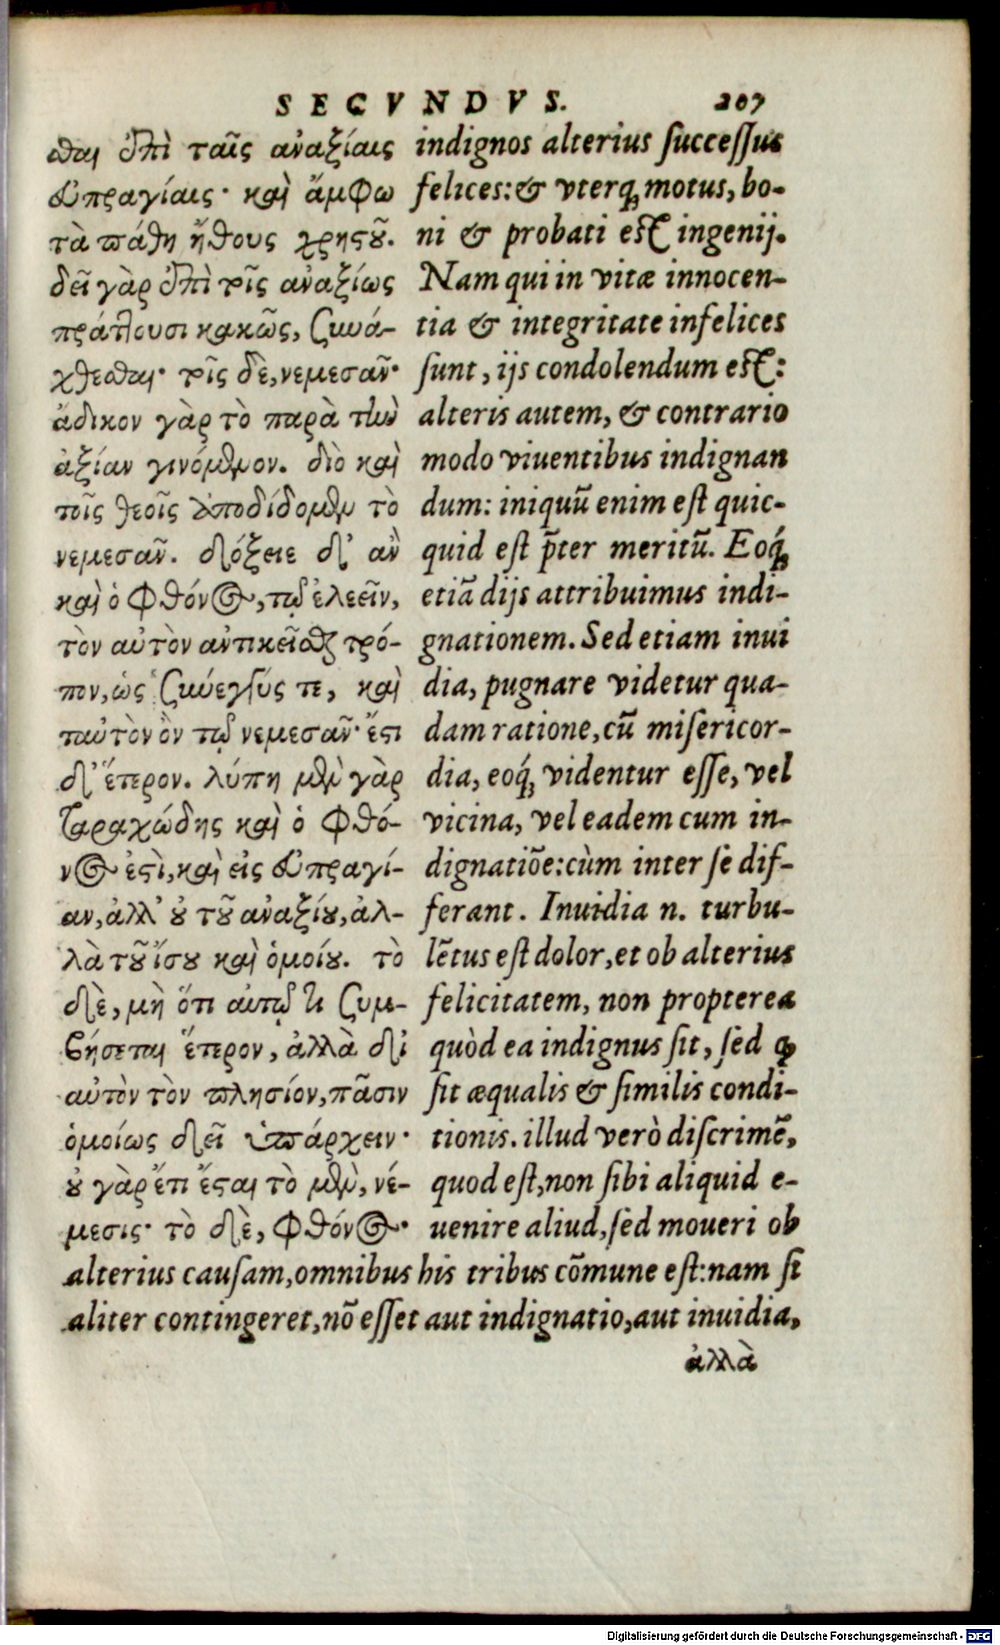 SECVNDVS. 207
σθαι ἐπὶ ταῖς ἀναξίαις
εὐπραγίαις· καὶ ἄμφω
τὰ πάθη ἤθους χρηστοῦ.
δεῖ γὰρ ἐπὶ τοῖς ἀναξίως
πράττουσι κακῶς, συνά-
χθεσθαι· τοῖς δὲ, νεμεσᾶν·
ἄδικον γὰρ τὸ παρὰ τὴν
ἀξίαν γινόμενον. διὸ καὶ
τοῖς θεοῖς ἀποδίδομεν τὸ
νεμεσᾶν. δόξειε δ' ἂν
καὶ ὁ φθόνος, τῷ ἐλεεῖν,
τὸν αὐτὸν ἀντικεῖσθαι τρό-
πον, ὡς σύνεγγύς τε, καὶ
ταὐτὸν ὂν τῷ νεμεσᾶν· ἔστι
δ' ἕτερον. λύπη μὲν γὰρ
ταραχώδης καὶ ὁ φθό-
νος ἐστὶ, καὶ εἰς εὐπραγί-
αν, ἀλλ' οὐ τοῦ ἀναξίου, ἀλ-
λὰ τοῦ ἴσου καὶ ὁμοίου. τὸ
δὲ, μὴ ὅτι αὐτῷ τι συμ-
βήσεται ἕτερον, ἀλλὰ δι'
αὐτὸν τὸν πλησίον, πᾶσιν
ὁμοίως δεῖ ὑπάρχειν·
οὐ γὰρ ἔτι ἔσται τὸ μὲν, νέ-
μεσις· τὸ δὲ, φθόνος·
indignos alterius successus
felices: & vterq; motus, bo-
ni & probati est ingenij.
Nam qui in vitæ innocen-
tia & integritate infelices
sunt, ijs condolendum est:
alteris autem, & contrario
modo viuentibus indignan
dum: iniquũ enim est quic-
quid est p̃ter meritũ. Eoq́;
etiã dijs attribuimus indi-
gnationem. Sed etiam inui
dia, pugnare videtur qua-
dam ratione, cũ misericor-
dia, eoq́; videntur esse, vel
vicina, vel eadem cum in-
dignatiõe: cùm inter se dif-
ferant. Inuidia n. turbu-
lẽtus est dolor, et ob alterius
felicitatem, non propterea
quòd ea indignus sit, sed ꝙ
sit æqualis & similis condi-
tionis. illud verò discrimẽ,
quod est, non sibi aliquid e-
uenire aliud, sed moueri ob
alterius causam, omnibus his tribus cõmune est: nam si
aliter contingeret, nõ esset aut indignatio, aut inuidia,
ἀλλὰ
Digitalisierung gefördert durch die Deutsche Forschungsgemeinschaft - DFG